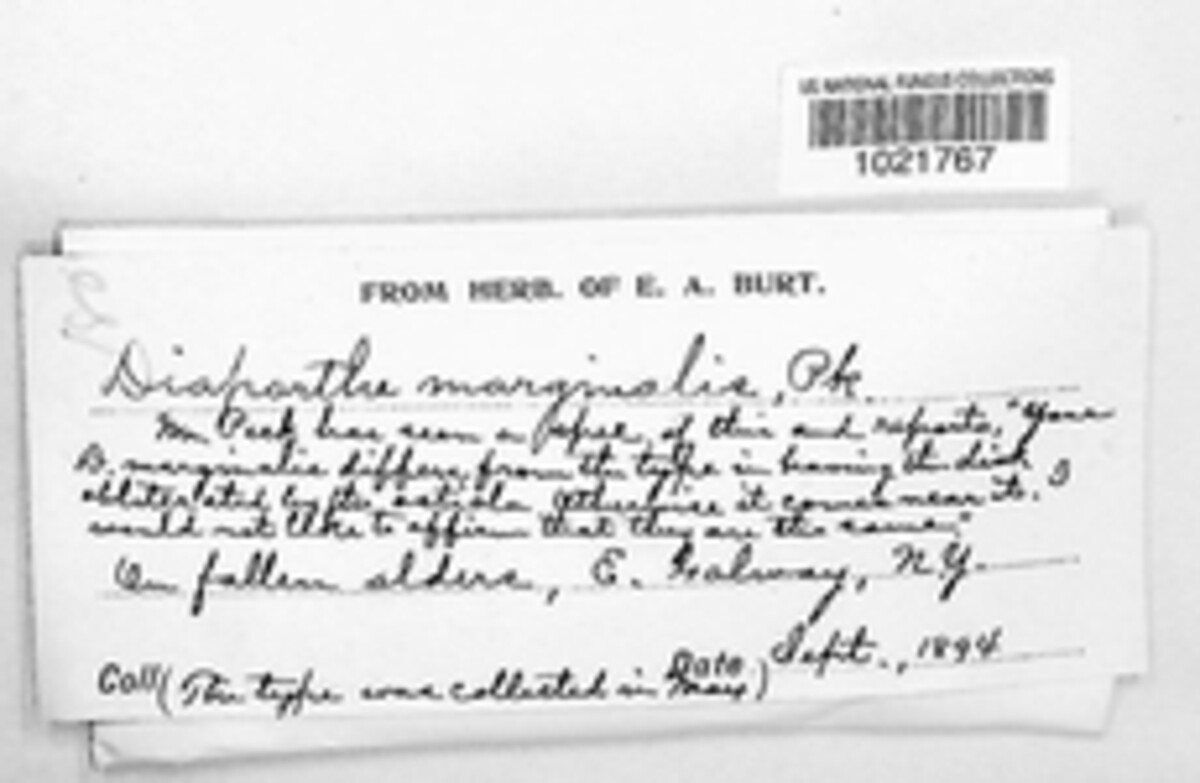 US NATIONAL FUNGUS COLLECTIONS
1021767
FROM HERB. OF E. A. BURT.
Diaporthe marginalis, Pk.
Mr. Peck has seen a of this and reports, "Your
D. marginalis differs from the type in having the disk
obliterated by the ostiola. Otherwise it comes near it. I
would not like to affirm that they are the same."
On fallen alders, E. Galway, N.Y.
Coll (The type was collected in May) Date Sept., 1894